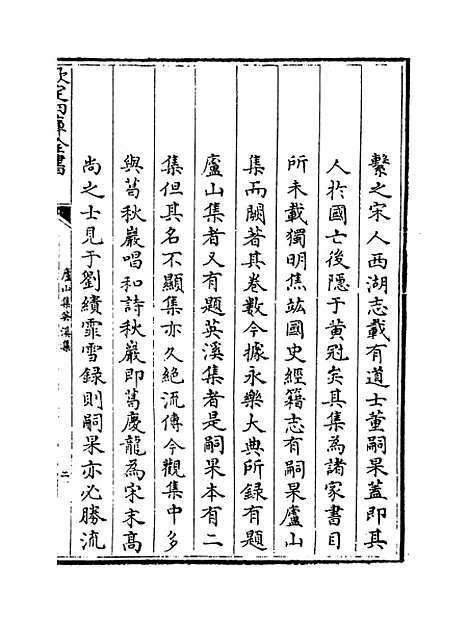 繫之宋人西湖志載有道士董嗣杲蓋即其
人於國亡後隱于黄冠矣其集為諸家書目
所未載獨明焦竑國史經籍志有嗣杲廬山
集而闕著其卷數今據永樂大典所録有題
廬山集者又有題英溪集者是嗣杲本有二
集但其名不顯集亦久絶流傳今觀集中多
與葛秋巖唱和詩秋巖即葛慶龍為宋末高
尚之士見于劉績霏雪録則嗣杲亦必勝流
欽定四庫全書
廬山集英溪集
二